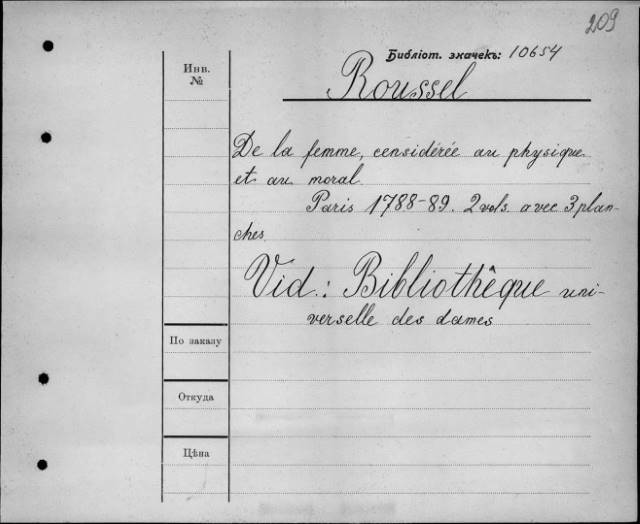 209
Библіот. значекъ: 10654
Инв.
№
Roussel
De la femme, considérée au physique
et au moral.
Paris 1788-89. 2 vols. avec 3 plan-
ches.
Vid.: Bibliothêque uni-
verselle des dames
По заказу
Откуда
Цѣна